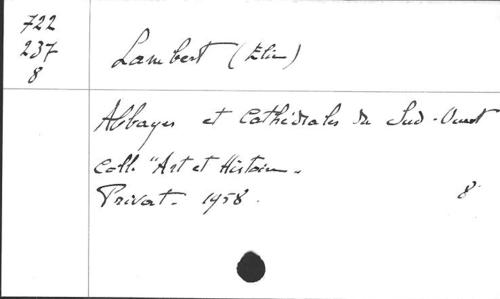 722
237
8
Lambert (Elie)
Abbayes et Cathédrales du Sud-Ouest
Coll. "Art et Histoire.
Privat. 1958.
8°